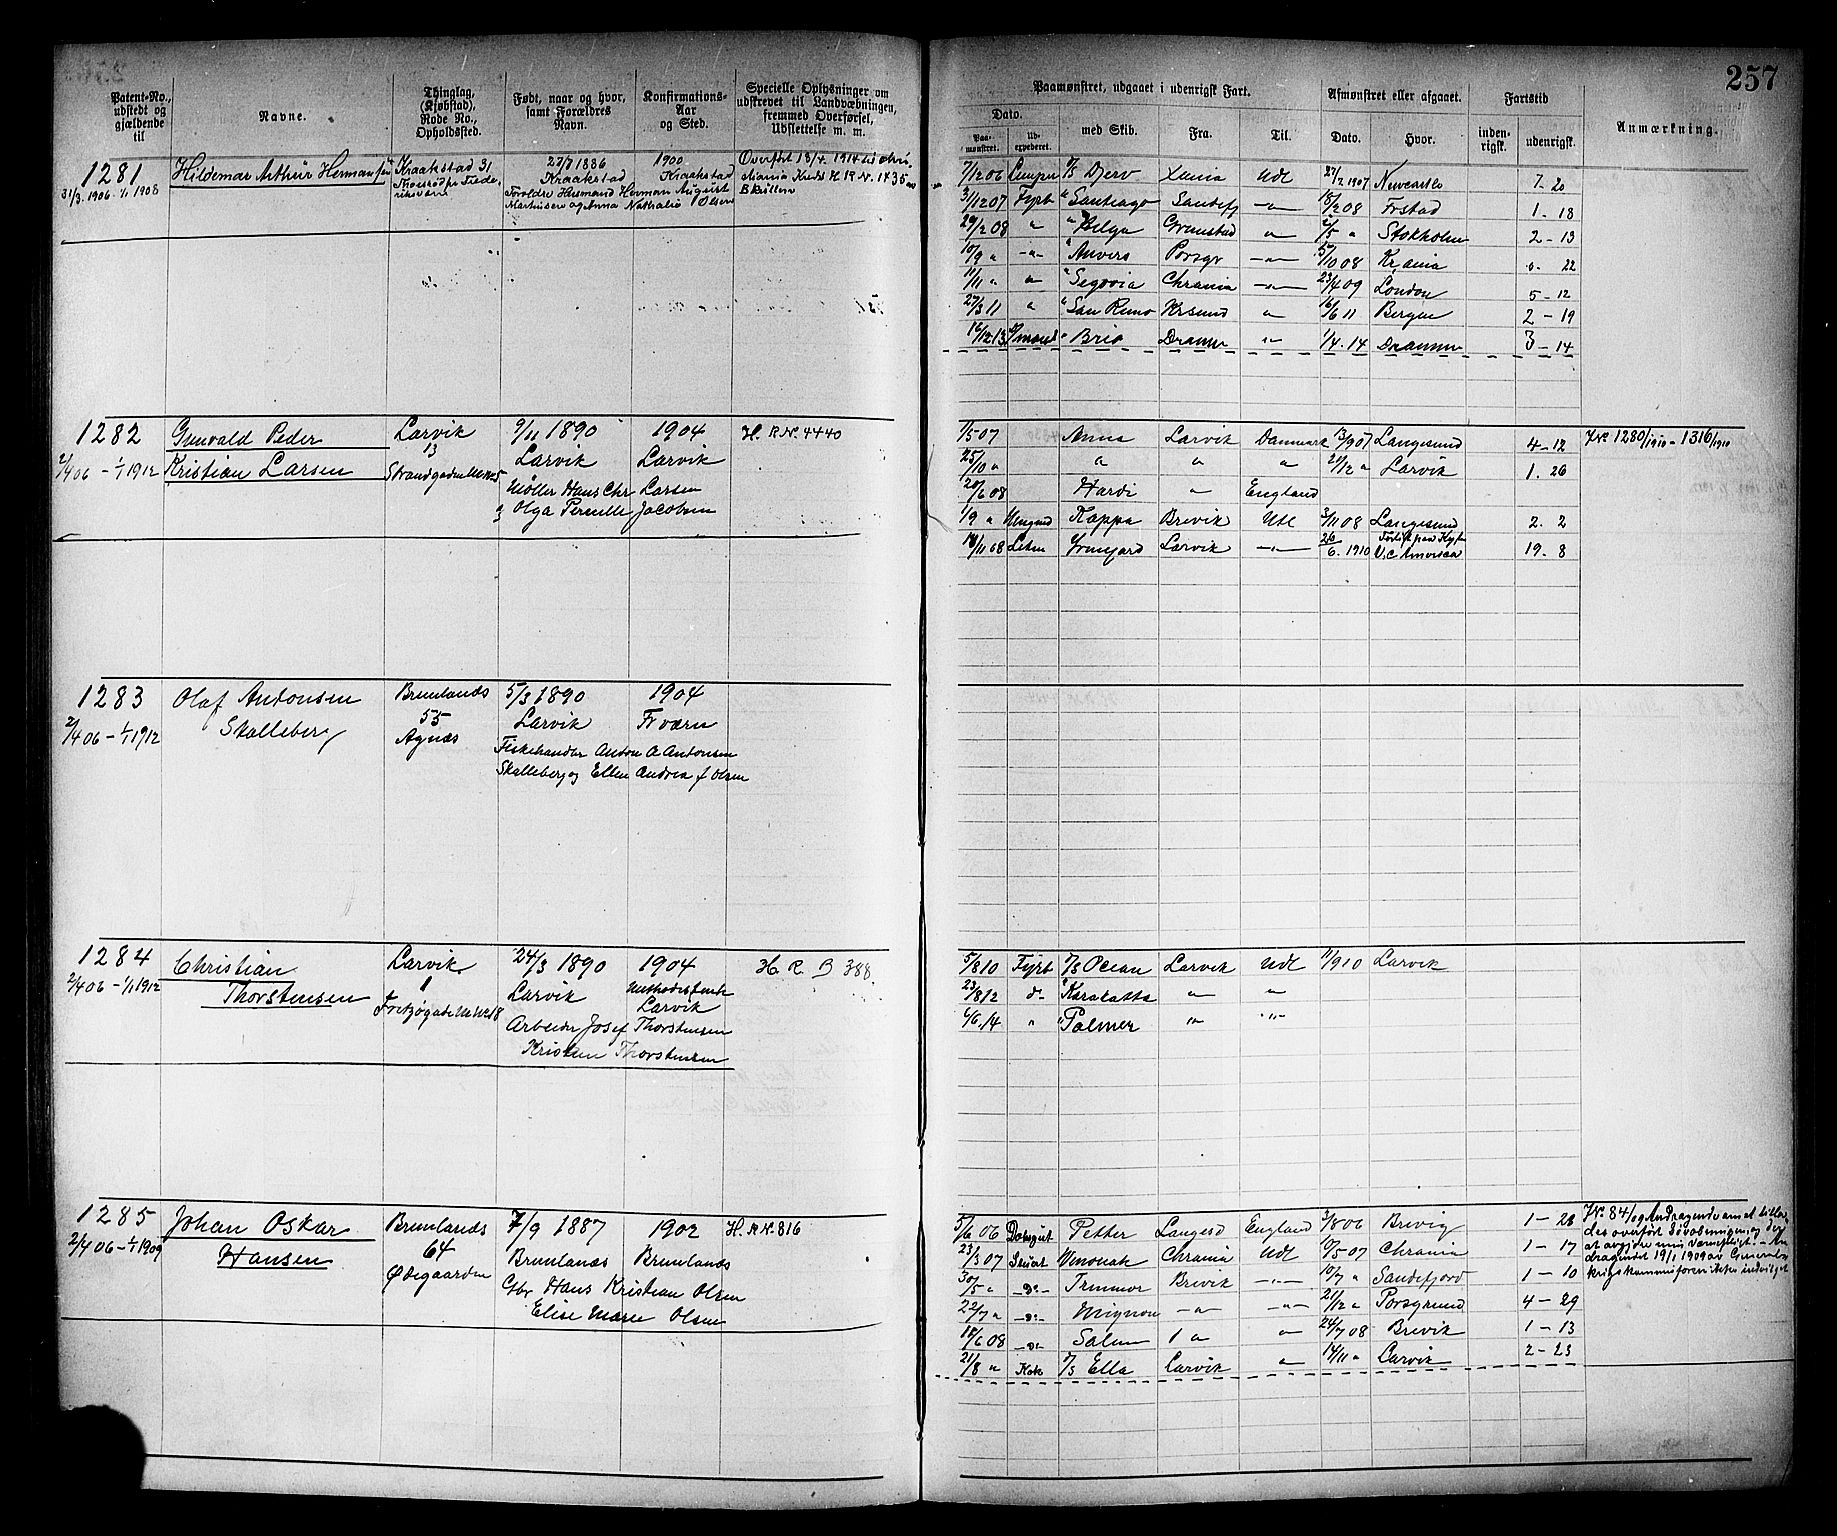 257
Patent-No., udstedt og gjældende til
Navne.
Thinglag, (Kjøbstad), Rode No., Opholdssted.
Født, naar og hvor, samt Forældres Navn.
Konfirmations- Aar og Sted.
Specielle Oplysninger om udskrevet til Landvæbningen, fremmed Overførsel, Udslettelse m. m.
Paamønstret, udgaaet i udenrigsk Fart.
Dato.
Paa- mønstret.
Ud- expederet.
med Skib.
Fra.
Til.
Afmønstret eller afgaaet.
Dato.
Hvor.
Fartstid
inden- rigsk.
udenrigsk.
Anmærkning.
1281
31/3 1906 - 1/1 1908
Hildemar Arthur Hermansen
Kraakstad 31
27/7 1886
Kraakstad
Forældre Husmand Herman August
Martinsen og Anna Nathalie Olsen
1900
Kraakstad
Overført 18/4. 1914 til Chri-
stiania Kreds H R N. 1435
7/12 06 D/S Djerv Xania Udl 27/2 1907 Newcastle 7 - 20
3/12 07 Fyrb " Santiago Sandefj — 18/2 08 Frstad 1 - 18
29/2 08 " " Helga Grimstad " 2/5 " Stokholm 2 - 13
10/9 " - " - " Anvers Porsgr — 5/10 08 Kr,ania 0 - 22
11/11 " " " Segovia Chrania — 23/4 09 London 5 - 12
27/3 11 " " San Remo Krsund " 16/6 11 Bergen 2 - 19
16/12 13 " Brio Dramm " 1/4. 14 Drammen 3 - 14
1282
2/4 06 - 1/1 1912
Gunvald Peder
Kristian Larsen
Larvik
13
9/11 1890
Larvik
Møller Hans Chr Larsen
og Olga Pernille Jacobsen
1904
Larvik
H. R N. 4440
1/5 07 Anna Larvik Danmark 13/9 07 Langesund 4 - 12
J No. 1280/1910 - 1316/1910
25/10 " " " " 21/12 " Larvik 1. 26
20/6 08 Hardi " England
1/9 " Kappa Brevik Udl 3/11 08 Langesund 2. 2
18/11 08 Irmgard Larvik — 26/6. 1910 19 - 8
1283
2/4 06 - 1/1 1912
Olaf Antonsen
Skalleberg
Brunlanæs
55
Agnæs
5/3 1890
Larvik
Fiskehandler Anton A Antonsen
Skalleberg og Ellen Andrea f Olsen
1904
Fr værn
1284
2/4 06 - 1/1 1912
Christian
Thorstensen
Larvik
1
24/3 1890
Larvik
Arbeider Josef Thorstensen
Kristen Thorstensen
1904
Larvik
H. R B 388
5/8 10 Fyrb D/S Ocean Larvik Udl 1/9 10 Larvik
23/8 12 d- " Karakatta " "
6/6. 14 " " Palmer " "
1285
2/4 06 - 1/1 1909
Johan Oskar
Hansen
Brunlanæs
64
Ødegaarden
7/9 1887
Brunlanæs
Gbr Hans Kristian Olsen
Elise Marie Olsen
1902
Brunlanæs
H. R N. 816
5/6 06 Petter Langesd England 3/8 06 Brevig 1 - 28
23/3 07 Winonah Chrania Udl 10/5 07 Chrania 1 - 17
30/5 " - D - Brevik — 10/7 " Sandefjord 1 - 10
22/7 " - D - Mignon - " - - " - 21/12 " Porsgrund 4 - 29
18/6 08 - D - Salem " " 24/7 08 Brevik 1 - 13
21/8 " Kok D/S Ella Larvik " 14/11 " Larvik 2 - 23
J No. 84/09 Andragende
dragendet 19/1 1909 av General